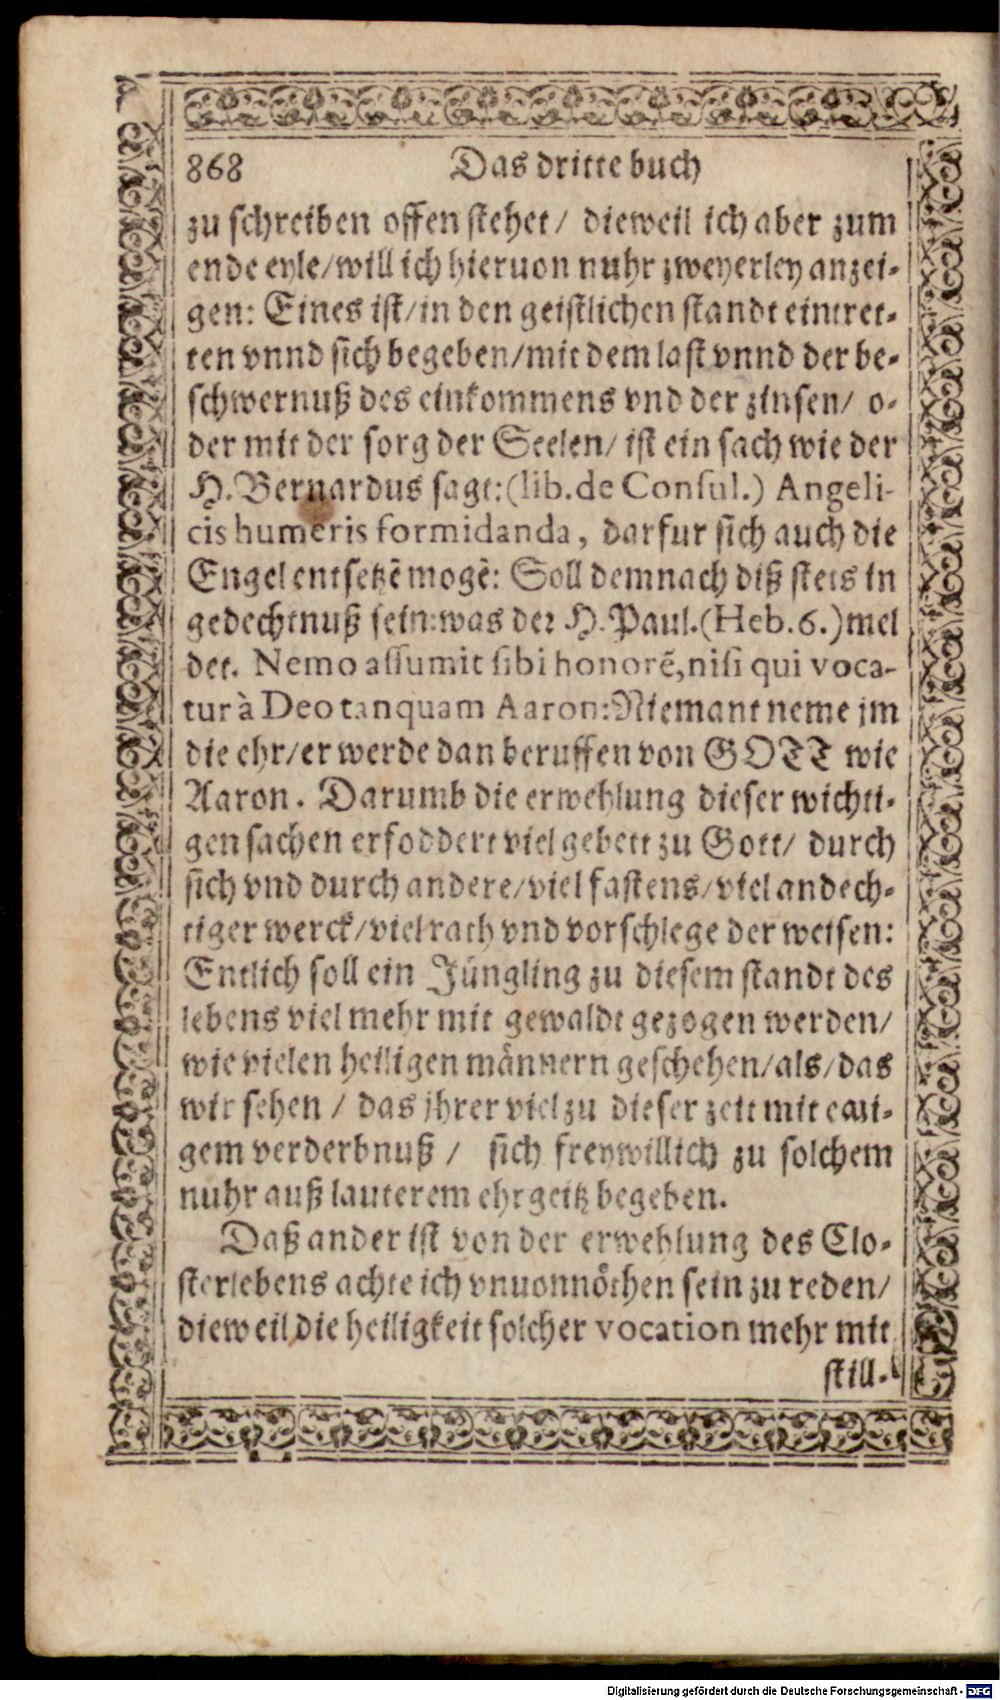 868 Das dritte buch
zu schreiben offen stehet/ dieweil ich aber zum
ende eyle/will ich hieruon nuhr zweyerley anzei-
gen: Eines ist/in den geistlichen standt eintret-
ten vnnd sich begeben/mit dem last vnnd der be-
schwernuß des einkommens vnd der zinsen/ o-
der mit der sorg der Seelen/ ist ein sach wie der
H.Bernardus sagt:(lib.de Consul.) Angeli-
cis humeris formidanda, darfur sich auch die
Engel entsetzẽ mogẽ: Soll demnach diß stets in
gedechtnuß sein:was der H.Paul.(Heb.6.)mel
det. Nemo assumit sibi honorẽ,nisi qui voca-
tur à Deo tanquam Aaron:Niemant neme jm
die ehr/er werde dan beruffen von GOTT wie
Aaron. Darumb die erwehlung dieser wichti-
gen sachen erfoddert viel gebett zu Gott/ durch
sich vnd durch andere/viel fastens/viel andech-
tiger werck/viel rath vnd vorschlege der weisen:
Entlich soll ein Jüngling zu diesem standt des
lebens viel mehr mit gewaldt gezogen werden/
wie vielen heiligen männern geschehen/als/das
wir sehen / das jhrer viel zu dieser zeit mit ewi-
gem verderbnuß / sich freywillich zu solchem
nuhr auß lauterem ehrgeitz begeben.
Daß ander ist von der erwehlung des Clo-
sterlebens achte ich vnuonnöthen sein zu reden/
dieweil die heiligkeit solcher vocation mehr mit
still-
Digitalisierung gefördert durch die Deutsche Forschungsgemeinschaft - DFG